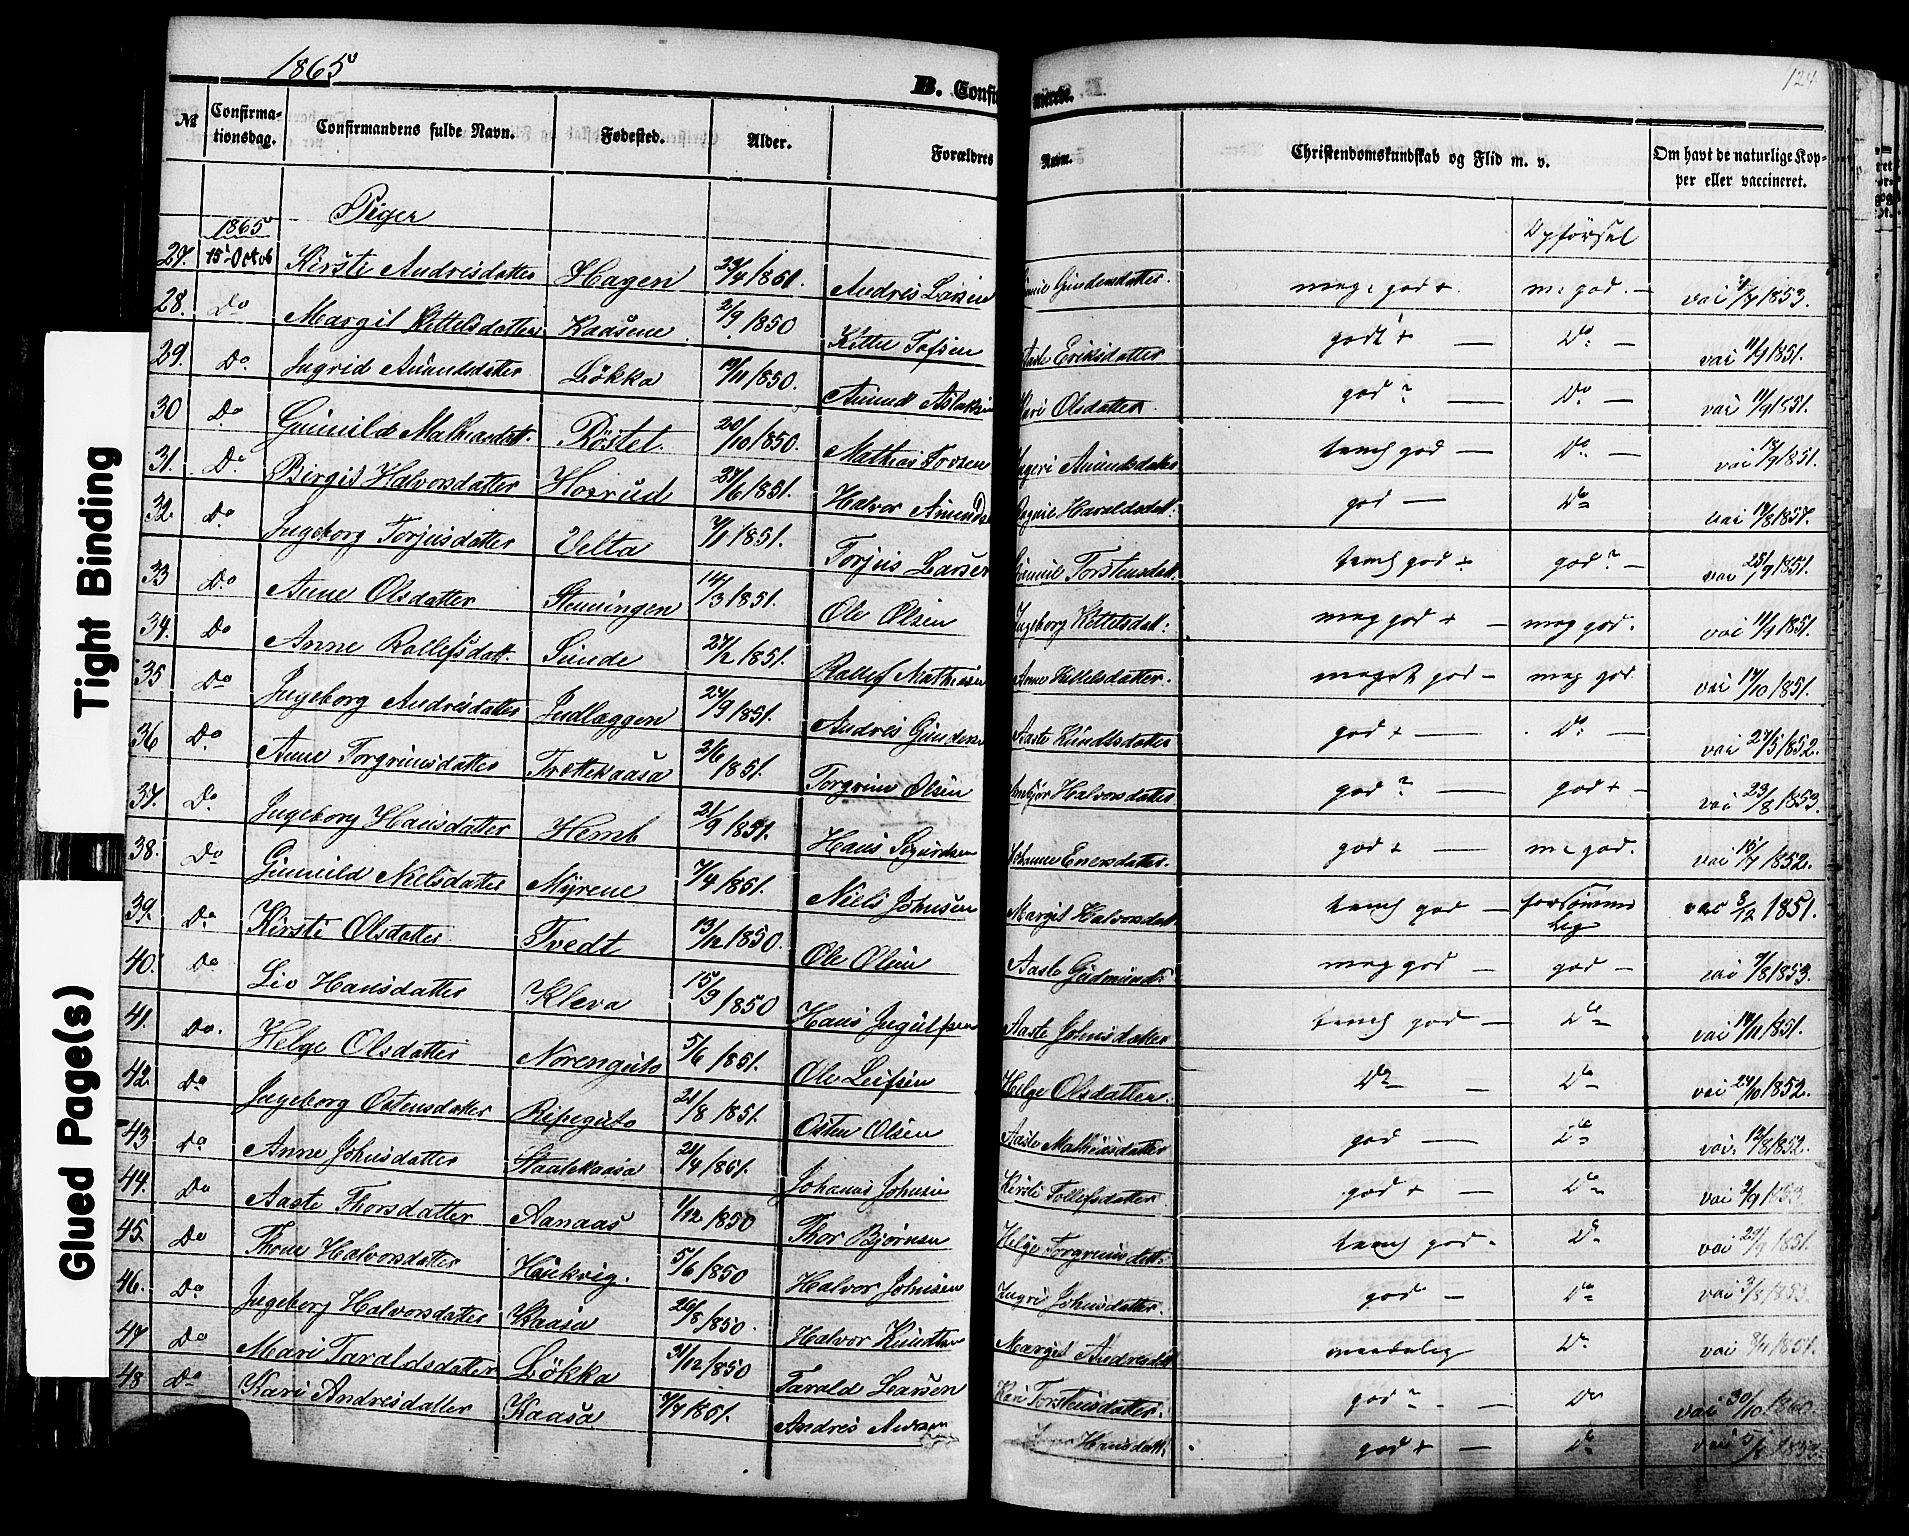 1865
124
B. Confir
mirede.
№ Confirma-tionsdag. Confirmandens fulde Navn. Fødested. Alder. Forældres Navn. Christendomskundskab og Flid m. v. Om havt de naturlige Kop-per eller vaccineret.
Piger
1865
Opförsel
27. 15 Octob Kirsti Andrisdatter Hagen 23/4 1851. Andris Larsen Gundersdatter. meg. god + m. god. — vac 1853.
28. Do Margit Kittelsdatter Kaasene 2/9 1850 Kittil Tofsen Aaste Eriksdatter godt + — Do — vac 11/9 1851.
29. Do. Ingrid Amundsdatter Lökka 19/11 1850. Amund Aslaksen Kari Olsdatter. god ? — Do — vac 11/9 1851.
30 Do Gunnild Mathiasdatt. Röstel 20/10 1850. Mathias Torsen Ingeri Amundsdatter temf god — Do — vac 1851.
31. Do Birgit Halvorsdatter Horrud 27/6 1851. Halvor Amunds Haraldsdatt: god — Do vac
32. Do Ingeborg Torjusdatter Velta 7/1 1851. Torjus Larsen Gunnil Torstensdatt. temf god + god ? — vac 25/9 1851.
33 Do Anne Olsdatter Stemningen 14/3 1851. Ole Olsen Ingeborg Kittelsdatt: meg god + — meg god. vac 11/9 1851.
34. Do Anne Rollefsdatt. Sunde 27/2 1851. Rollef Mathisen Anne Kittelsdatter. meget god — meg god. vac 17/10 1851.
35 Do Ingeborg Andrisdatter Indlæggen 24/9 1851. Andris Gunders Aaste Knudtsdatter god + — Do — vac 27/5 1852.
36 Do Anne Torgrimsdatter Trættekaasa 2/6 1851. Torgrim Olsen Halvorsdatter god ? — god + — vac 23/8 1853.
37. Do Ingeborg Hansdatter Hemb 21/9 1851. Hans Sigurdsen Johanne Enersdatter. god + — m. god. vac 15/7 1852.
38. Do Gunnild Nilsdatter Myrene 7/4 1851. Niels Johnsen Margit Halvorsdatt. temf god — forsömmelig vac 3/12 1851.
39. Do Kirsti Olsdatter. Tvedt 13/12 1850. Ole Olsen Aaste Gudmunds: meg god — god — vac 9/8 1853.
40. Do Liv Hansdatter Kleva 15/9 1850 Hans Ingulfsen Aaste Johnsdatter temf god — Do — vac 1851.
41. Do. Helge Olsdatter Norenguto 5/6 1851. Ole Leifsen Helge Olsdatter. Do — Do — vac 24/10 1852.
42. Do Ingeborg Ostensdatter Ripeguto 21/8 1851. Osten Olsen Aaste Mathiasdatter god — Do — vac. 13/8 1852.
43 Do Anne Johnsdatter Staalekaasa 21/4 1851. Johanes Johnsen Kirsti Tollefsdatter. god + — Do — vac 9/9 1853
44. Do Aaste Thorsdatter Aanaas 1/12 1850 Thor Bjørnsen Helge Torgrimsdatt: temf god. Do vac 29/9 1851.
45. Do Thone Halvorsdatter Haukvig. 5/6 1850 Halvor Johnsen Ingri Johnsdatter. god — Do vac 3/8 1853.
46. Do Ingeborg Halvorsdatter Kaasa 26/8 1850. Halvor Knudtsen Margit Andresdatt maadelig Do vac 1851.
47 Do Mari Taraldsdatter Lökka 31/12 1850 Tarald Larsen Kari Torstensdatter. god ? — Do vac 30/10
48 Do Kari Andrisdatter Kaasa 7/7 1851. Andris Hansdatt. god + — Do vac
Tight Binding
Glued Page(s)